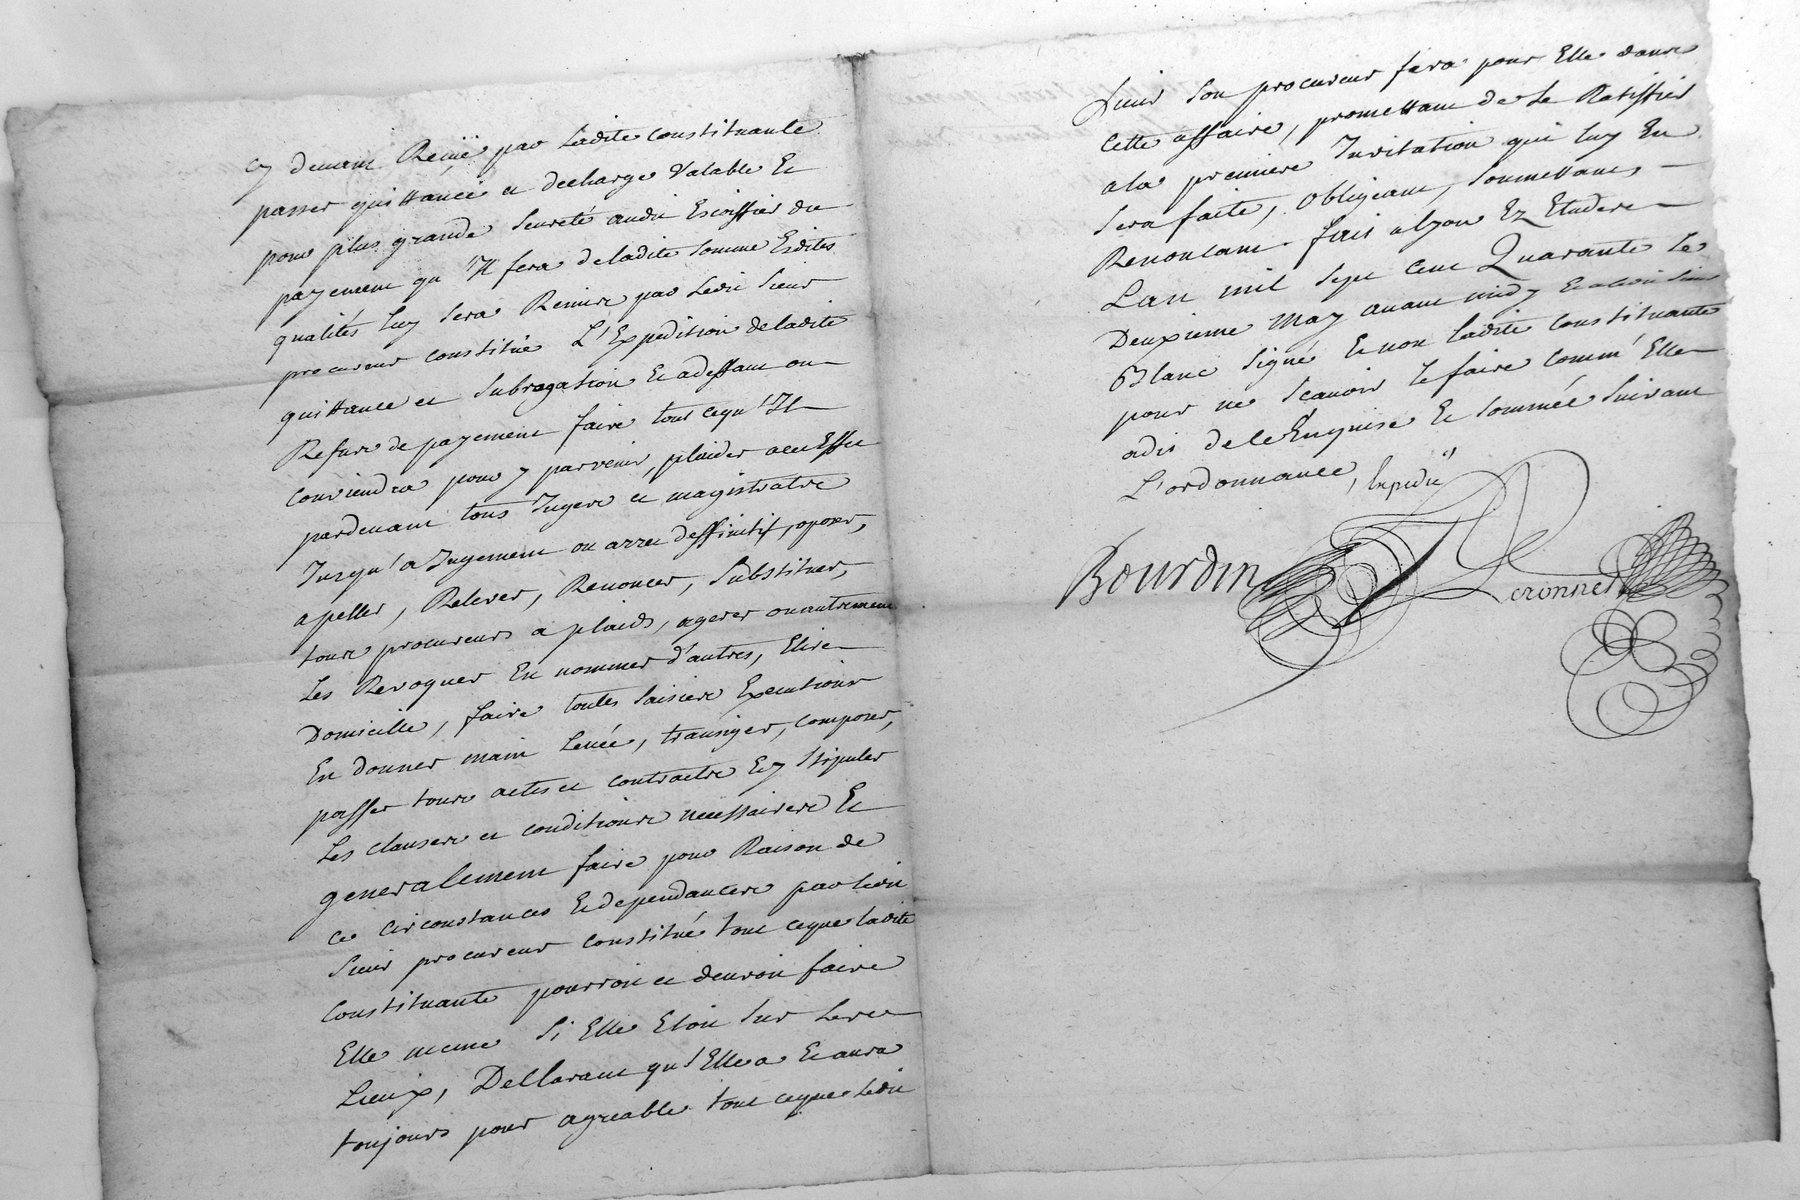 cy devant Reçüe par Ladite constituante
passer quittance et decharge Valable Et
pour plus grande seureté audit Escoffier du
payement qu'Il fera de ladite somme Esdites
qualités luy sera Remise par Ledit sieur
procureur constitué L'Expedition de ladite
quittance et subrogation Et adeffaut ou
Refus de payement faire tout cequ'Il
conviendra pour y parvenir, plaider aceteffet
pardevant tous Juges et magistrats
Jusqu'a Jugement ou arret deffinitif, oposer,
apeller, Relever, Renoncer, substituer,
tous procureurs a plaids, agerer ou autrement
Les Revoquer En nommer d'autres, Elire
Domicille, faire toutes saisies Executions
En donner main Levée, transiger, composer,
passer tous actes et contracts Ety stipuler
Les clauses et conditions necessaires Et
generalement faire pour Raison de
ce circonstances Et dependances par ledit
sieur procureur constitué tout ceque ladite
Constituante pourroit et devroit faire
Elle meme si Elle Etoit sur Les
Lieux, Declarant qu'Elle a Et aura
toujours pour agreable tout ceque ledit
sieur son procureur fera pour Elle dans
cette affaire, promettant de Le Ratiffier
ala premiere Invitation qui luy En
sera faite, obligeant, soumettant,
Renoncant. fait a Lyon Ez Etudes
L'an mil sept cent Quarante Le
Deuxieme May avant midy Et a ledit sieur
Blanc signé Et non ladite constituante
pour ne scavoir Le faire comm'Elle
adit de ce Enquise Et sommée suivant
L'ordonnance, Expedié
Bourdin Peronnet